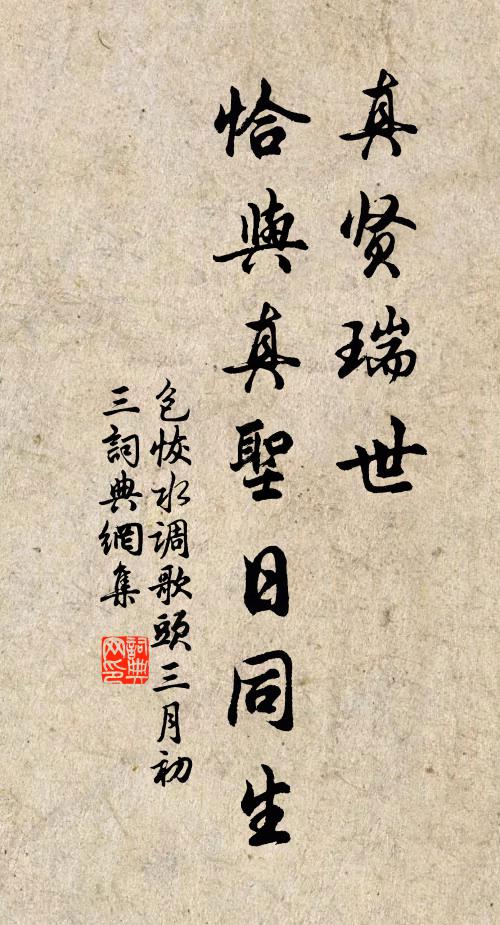 真贤瑞世
恰與真聖日同生
包恢水调歌頭三月初
三詞典網集
詞典
网印